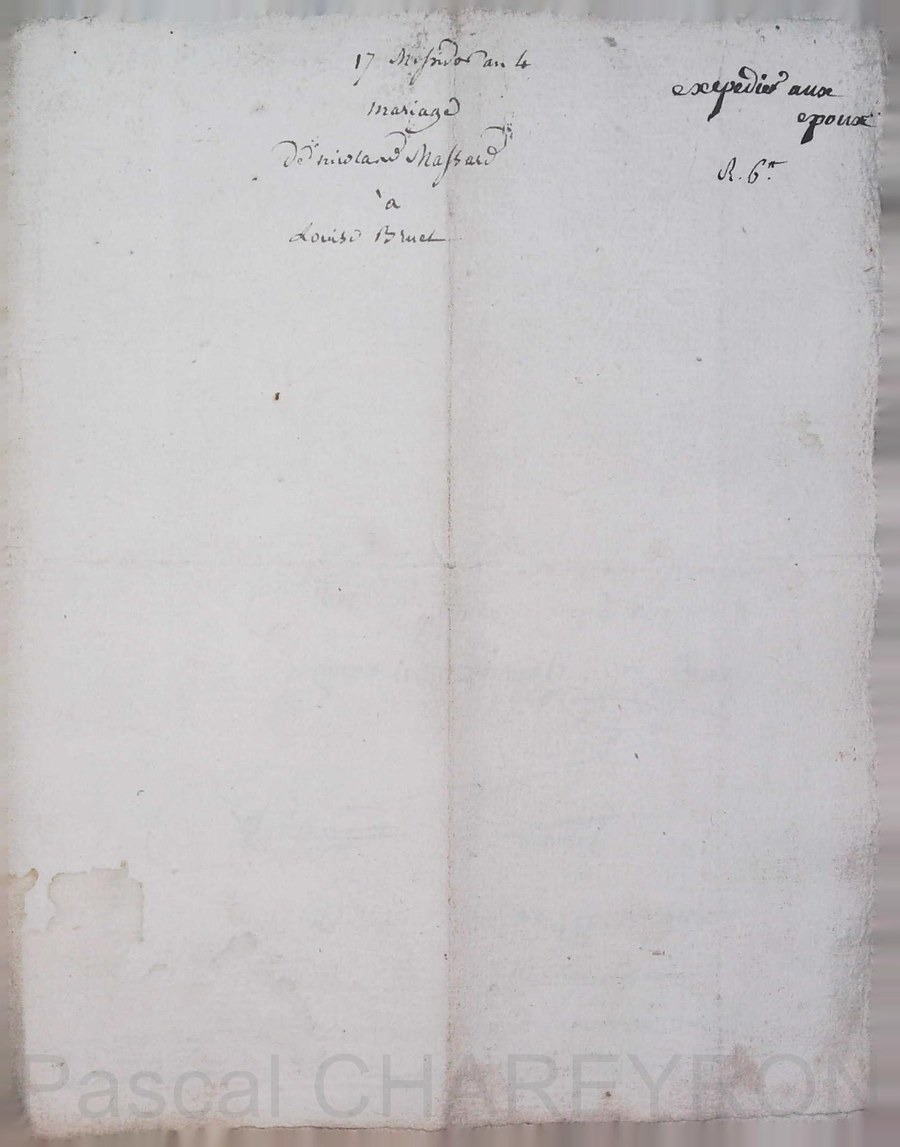 17 Messidor an 4
mariage
de nicolard Massard
à
Louise Bruet
expedier aux
epoux
R. 6#
Pascal CHAREYRON